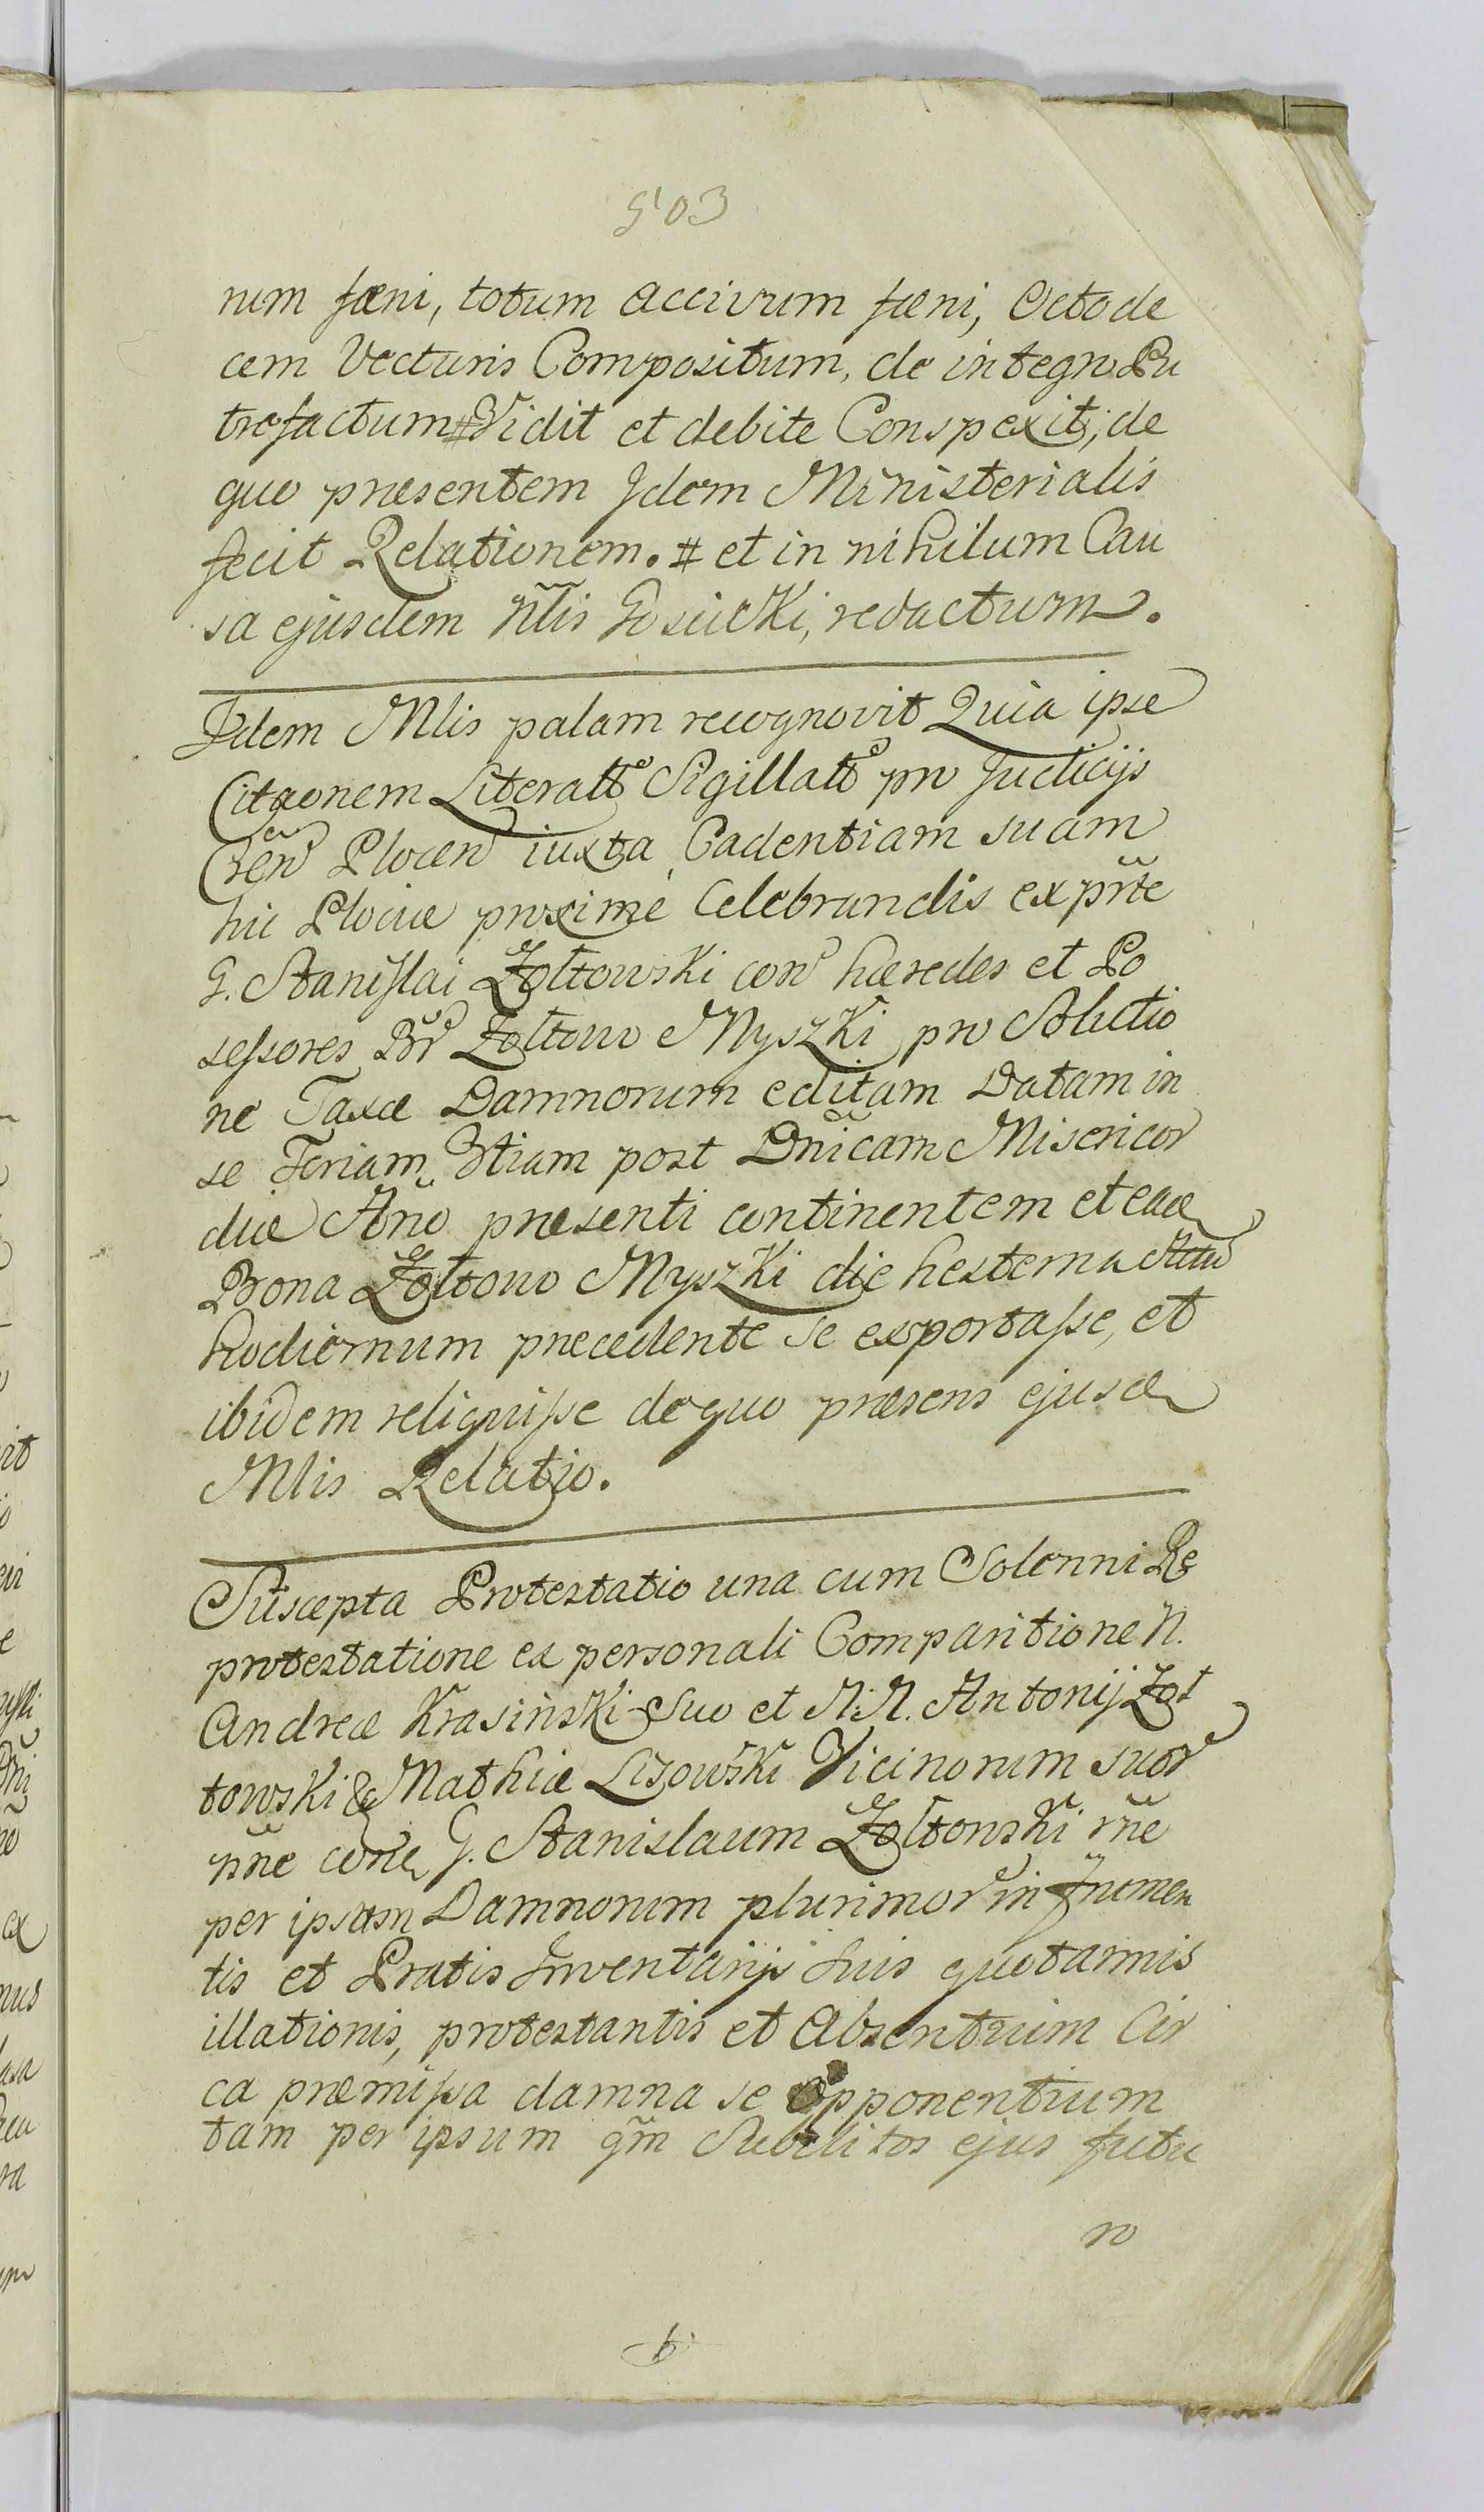 503
rum fæni, totum accivum fæni, Octode
cem Vecturis Compositum, de integro Pu
trefactum # Vidit et debite Conspexit, de
quo præsentem Idem Ministerialis
fecit Relationem. # et in nihilum Cau
sa ejusdem Nlis redactum.
Idem Mlis palam recognovit Quia ipse
Citaonem Literatt Sigillatt pro Judicijs
Plocen iuxta Cadentiam suam
hic Plociæ proximé Celebrandis ex prte
G. Stanislai Żołtowski con hæredes et Po
sessores Br Żołtowo Myszki pro Solutio
ne Taxæ Damnorum editam Datam in
se Feriam 3tiam post Dnicam Misericor
diæ Ano præsenti continentem et eadem
Bona Żołtowo Myszki die hesterna Actum
hodiernum præcedente se exportasse, et
ibidem reliquisse de quo præsens ejusd
Mlis Relatio.
Suscepta Protestatio una cum Solenni Re
protestatione ex personali Comparitione N.
Andreæ Krasiński Suo et N.N. Antonij Żoł
towski & Mathiæ Lisowski Vicinorum suor
nne contra G. Stanislaum Żołtowski rne
per ipsum Damnorum plurimor in Frumen
tis et Pratis Inventarijs suis quotannis
illationis, protestantis et Absentium Cir
ca præmissa damna se Opponentium
tam per ipsum qm Subditos ejus futu
ro